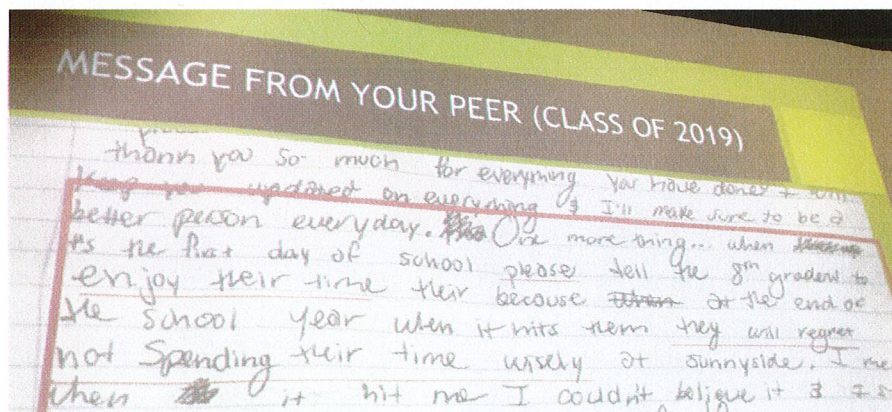 MESSAGE FROM YOUR PEER (CLASS OF 2019)
thank you so much for everything you have done &
keep you updated on everything & I'll make sure to be a
better person everyday. One more thing... when
it's the first day of school please tell the 8th graders to
enjoy their time their because at the end of
the school year when it hits them they will regret
not spending their time wisely at sunnyside. I me
when it hit me I couldn't beligve it & I